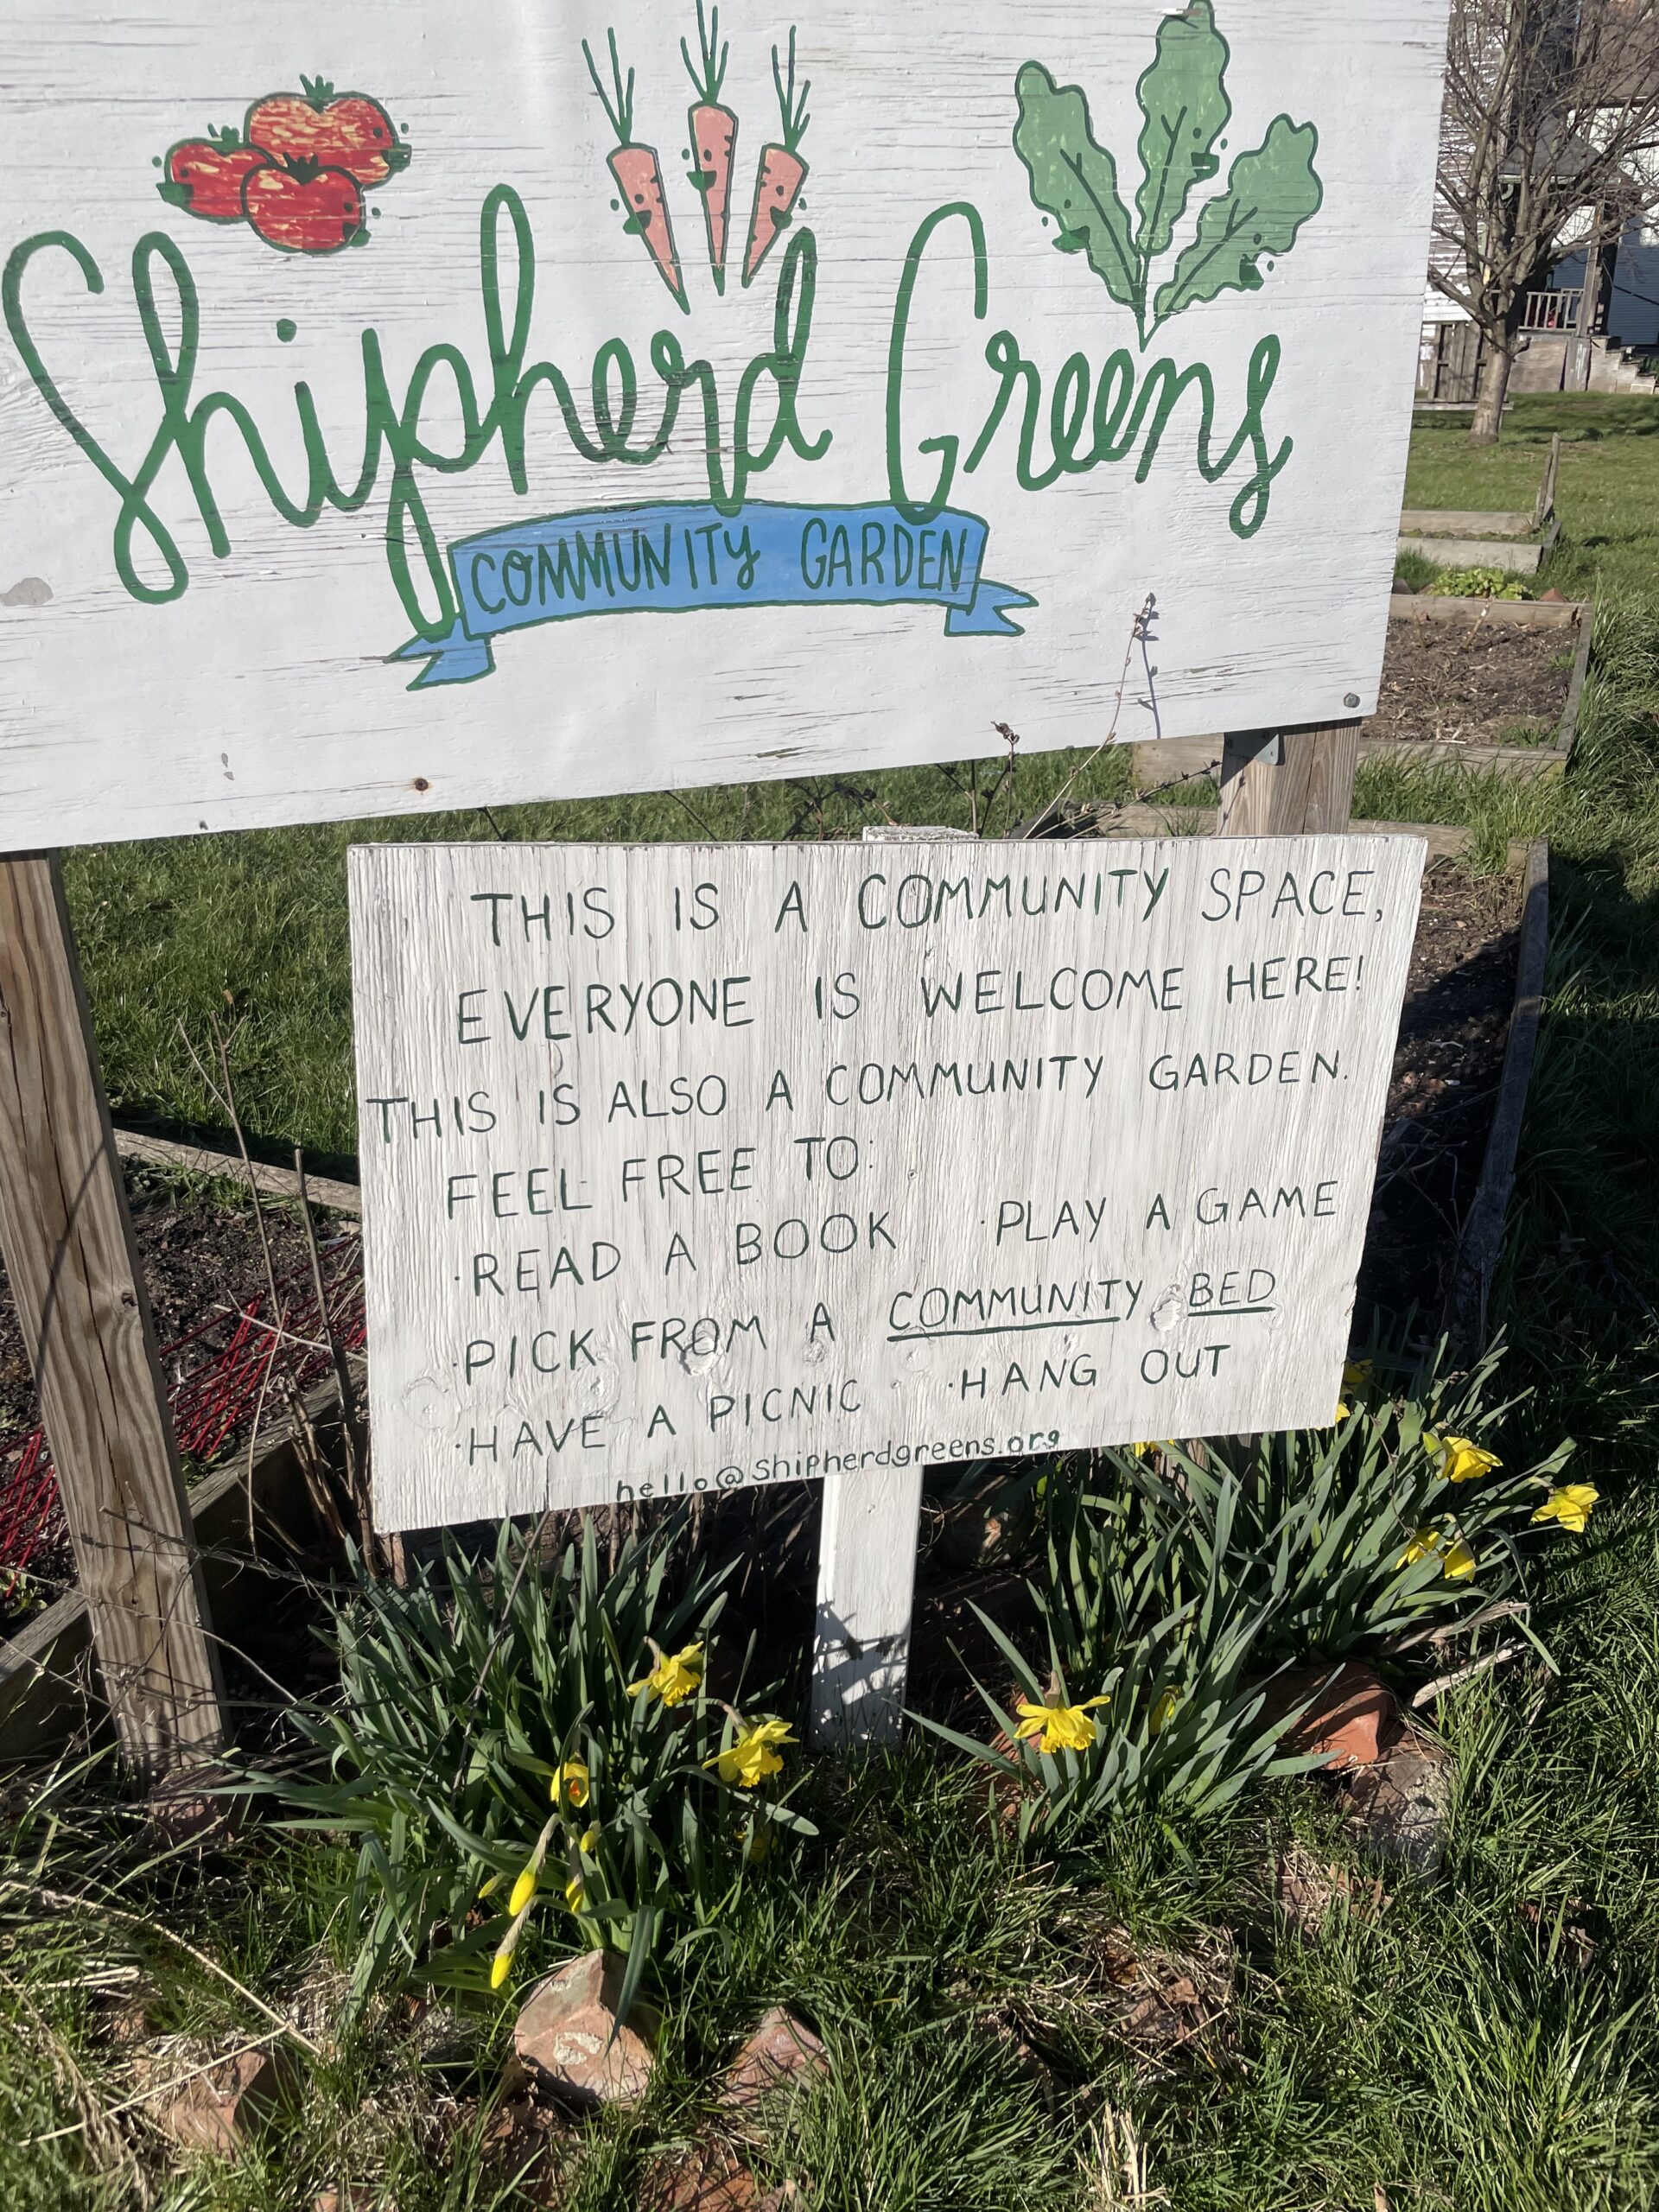 Shipherd Greens
COMMUNITY GARDEN
THIS IS A COMMUNITY SPACE,
EVERYONE IS WELCOME HERE!
THIS IS ALSO A COMMUNITY GARDEN.
FEEL FREE TO:
·READ A BOOK ·PLAY A GAME
·PICK FROM A COMMUNITY BED
·HAVE A PICNIC ·HANG OUT
hello@shipherdgreens.org